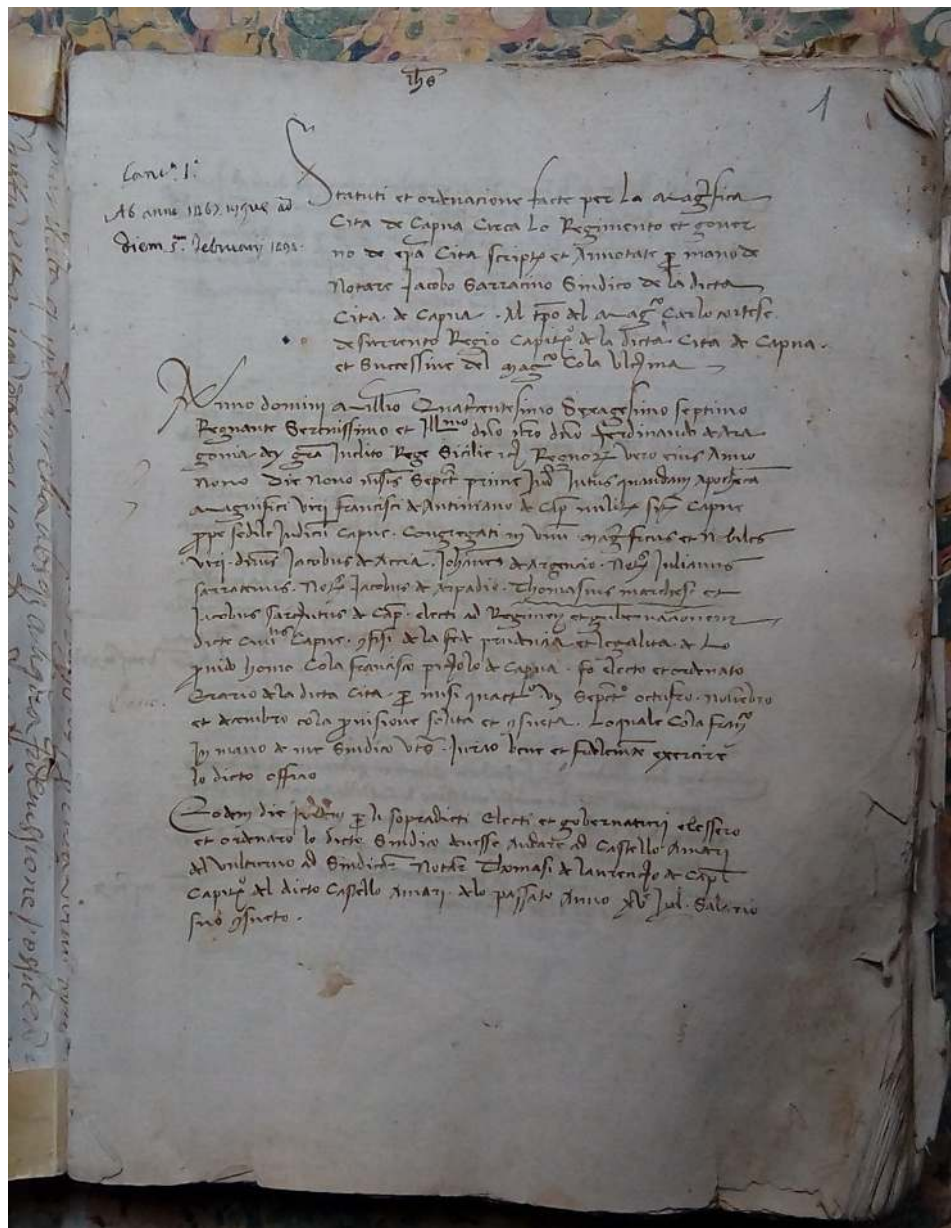 yhs
1
Canc.ª 1.ª
Ab anno 1467. usque ad
diem 5.m februarij 1494.
Statuti et ordenacione facte per la magfica
Cita de Capua Circa lo Regimento et gover
no de epsa Cita script et Annotate p mano de
Notare Jacobo Sarracino Sindico de la dicta
Cita de Capua. Al tpo del mag.co Carlo cortese
de surrento Regio Capit de la dicta Cita de Capua.
et Successive del mag.co Cola
Anno domini Millio Quatcentesimo Sexagesimo septimo
Regnante Serenissimo et Illmo dno nro dno ferdinando de Ara
gonia dei gra Inclito Rege Sicilie Regnor vero eius Anno
nono die nono mensis Septebr prime Ind Intus quandam Apothecā
magnifici viri francisci de Antiniano de Cap milit sit Capue
prope sedile Judicum Capue. Congregati in unu magnificus et nobiles
viri. dnus Jacobus de Accia. Johanes de Argencio. Not Julianus
sarracinus. Not Jacobus de arpadio. Thomasius marchese et
Jacobus de Cap. electi ad Regimen et gubernacionem
dicte Civitis Capue. 9fisi de la fede prudencia et legalita de lo
provido homo Cola francisco de Capua. fo electo et ordenato
Erario de la dicta Cita. p misi quactro vz Septebr octufro. novebro
et decembro cola provisione solita et 9sueta. Loquale Cola fran.co
In mano de me Sindico uts. Jurao bene et fidelemete exercire
lo dicto officio
Eodem die p li sopradicti Electi et gobernaturi elessero
et ordenaro lo dicto Sindico devesse andare ad Castello Amari
del vulturno ad Sindicar Notar Thomasi de laurencio de Cap
Capit del dicto Castello Amari. delo passato Anno xv Ind. Salario
suo 9sueto.